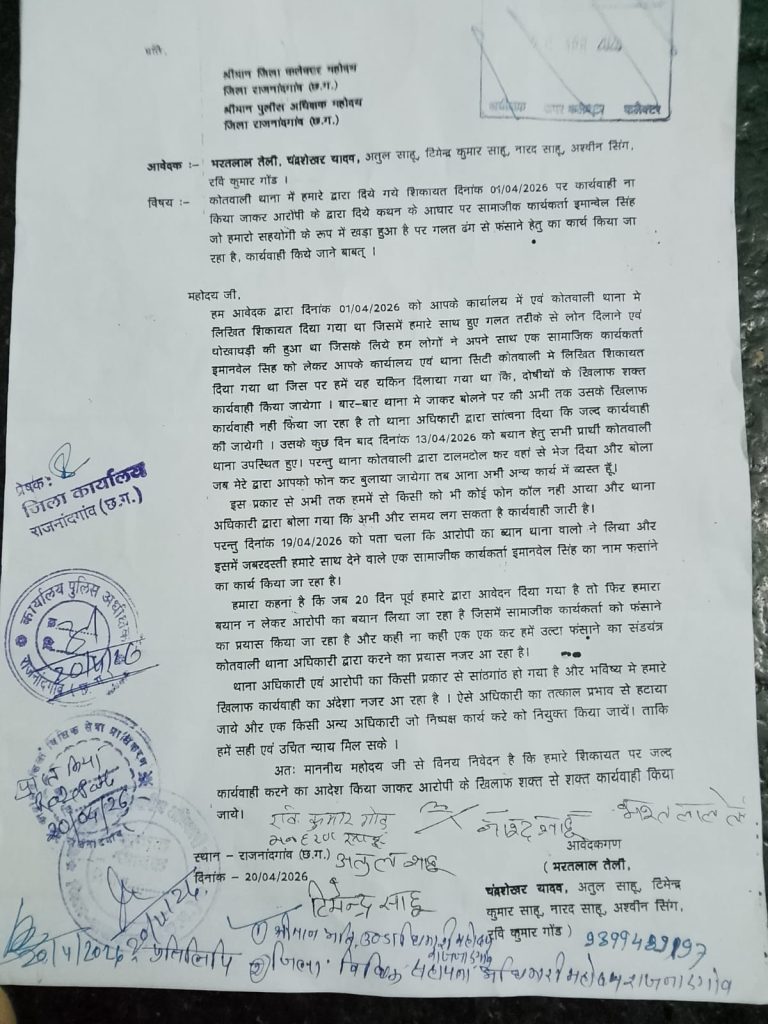 प्रति,
श्रीमान जिला कलेक्टर महोदय
जिला राजनांदगांव (छ.ग.)
श्रीमान पुलीस अधिक्षक महोदय
जिला राजनांदगांव (छ.ग.)
कलेक्टर
आवेदक :– भरतलाल तेली, चंद्रशेखर यादव, अतुल साहू, टिमेन्द्र कुमार साहू, नारद साहू, अश्वीन सिंग,
रवि कुमार गोंड ।
विषय :– कोतवाली थाना में हमारे द्वारा दिये गये शिकायत दिनांक 01/04/2026 पर कार्यवाही ना
किया जाकर आरोपी के द्वारा दिये कथन के आधार पर सामाजीक कार्यकर्ता इमान्वेल सिंह
जो हमारो सहयोगी के रूप में खड़ा हुआ है पर गलत ढंग से फंसाने हेतु का कार्य किया जा
रहा है, कार्यवाही किये जाने बाबत् ।
महोदय जी,
हम आवेदक द्वारा दिनांक 01/04/2026 को आपके कार्यालय में एवं कोतवाली थाना मे
लिखित शिकायत दिया गया था जिसमें हमारे साथ हुए गलत तरीके से लोन दिलाने एवं
धोखाधड़ी की हुआ था जिसके लिये हम लोगों ने अपने साथ एक सामाजिक कार्यकर्ता
इमानवेल सिह को लेकर आपके कार्यालय एवं थाना सिटी कोतवाली मे लिखित शिकायत
दिया गया था जिस पर हमें यह यकिन दिलाया गया था कि, दोषीयों के खिलाफ शक्त
कार्यवाही किया जायेगा । बार–बार थाना मे जाकर बोलने पर की अभी तक उसके खिलाफ
कार्यवाही नही किया जा रहा है तो थाना अधिकारी द्वारा सांत्वना दिया कि जल्द कार्यवाही
की जायेगी । उसके कुछ दिन बाद दिनांक 13/04/2026 को बयान हेतु सभी प्रार्थी कोतवाली
थाना उपस्थित हुए। परन्तु थाना कोतवाली द्वारा टालमटोल कर वहां से भेज दिया और बोला
जब मेरे द्वारा आपको फोन कर बुलाया जायेगा तब आना अभी अन्य कार्य में व्यस्त हूँ।
इस प्रकार से अभी तक हममें से किसी को भी कोई फोन कॉल नही आया और थाना
अधिकारी द्वारा बोला गया कि अभी और समय लग सकता है कार्यवाही जारी है।
परन्तु दिनांक 19/04/2026 को पता चला कि आरोपी का ब्यान थाना वालो ने लिया और
इसमें जबरदस्ती हमारे साथ देने वाले एक सामाजीक कार्यकर्ता इमानवेल सिंह का नाम फसांने
का कार्य किया जा रहा है।
हमारा कहना है कि जब 20 दिन पूर्व हमारे द्वारा आवेदन दिया गया है तो फिर हमारा
बयान न लेकर आरोपी का बयान लिया जा रहा है जिसमें सामाजीक कार्यकर्ता को फंसाने
का प्रयास किया जा रहा है और कही ना कही एक एक कर हमें उल्टा फंसाने का संडयंत्र
कोतवाली थाना अधिकारी द्वारा करने का प्रयास नजर आ रहा है।
थाना अधिकारी एवं आरोपी का किसी प्रकार से सांठगांठ हो गया है और भविष्य मे हमारे
खिलाफ कार्यवाही का अंदेशा नजर आ रहा है । ऐसे अधिकारी का तत्काल प्रभाव से हटाया
जाये और एक किसी अन्य अधिकारी जो निष्पक्ष कार्य करे को नियुक्त किया जायें। ताकि
हमें सही एवं उचित न्याय मिल सके ।
अतः माननीय महोदय जी से विनय निवेदन है कि हमारे शिकायत पर जल्द
कार्यवाही करने का आदेश किया जाकर आरोपी के खिलाफ शक्त से शक्त कार्यवाही किया
जाये।
प्रेषक:
जिला कार्यालय
राजनांदगांव (छ.ग.)
कार्यालय पुलिस अधीक्षक
राजनांदगांव (छ.ग.)
20/4/26
विधिक सेवा प्राधिकरण
20/04/26
रवि कुमार गोंड
नारद साहू
भरत लाल तेली
अतुल साहू
टिमेन्द्र साहू
स्थान – राजनांदगांव (छ.ग.)
दिनांक – 20/04/2026
आवेदकगण
( भरतलाल तेली,
चंद्रशेखर यादव, अतुल साहू, टिमेन्द्र
कुमार साहू, नारद साहू, अश्वीन सिंग,
रवि कुमार गोंड )
20/4/26
20/4/2026 प्रतिलिपि
① श्रीमान महोदय राजनांदगांव
② जिला विधिक सहायता अधिकारी महोदय राजनांदगांव